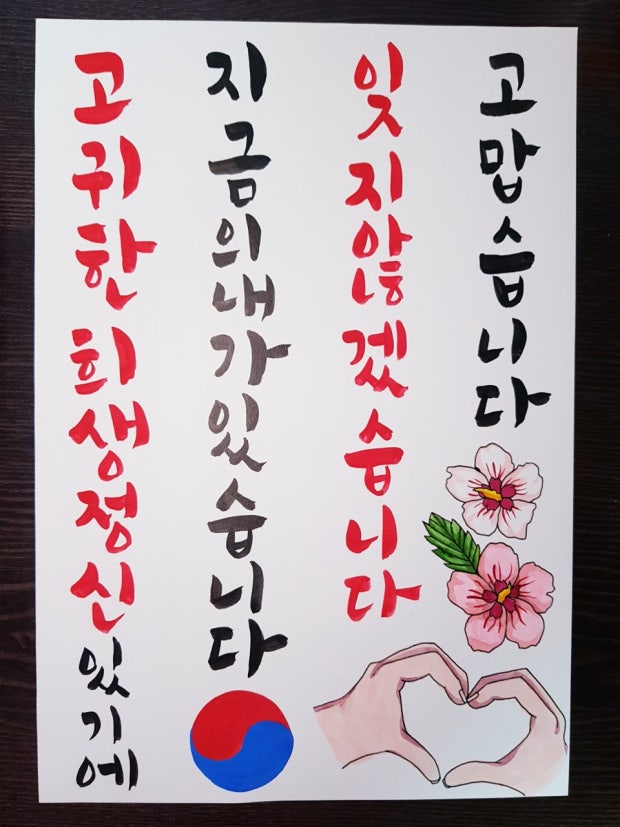 고귀한 희생정신 있기에
지금의 내가 있습니다
잊지 않겠습니다
고맙습니다